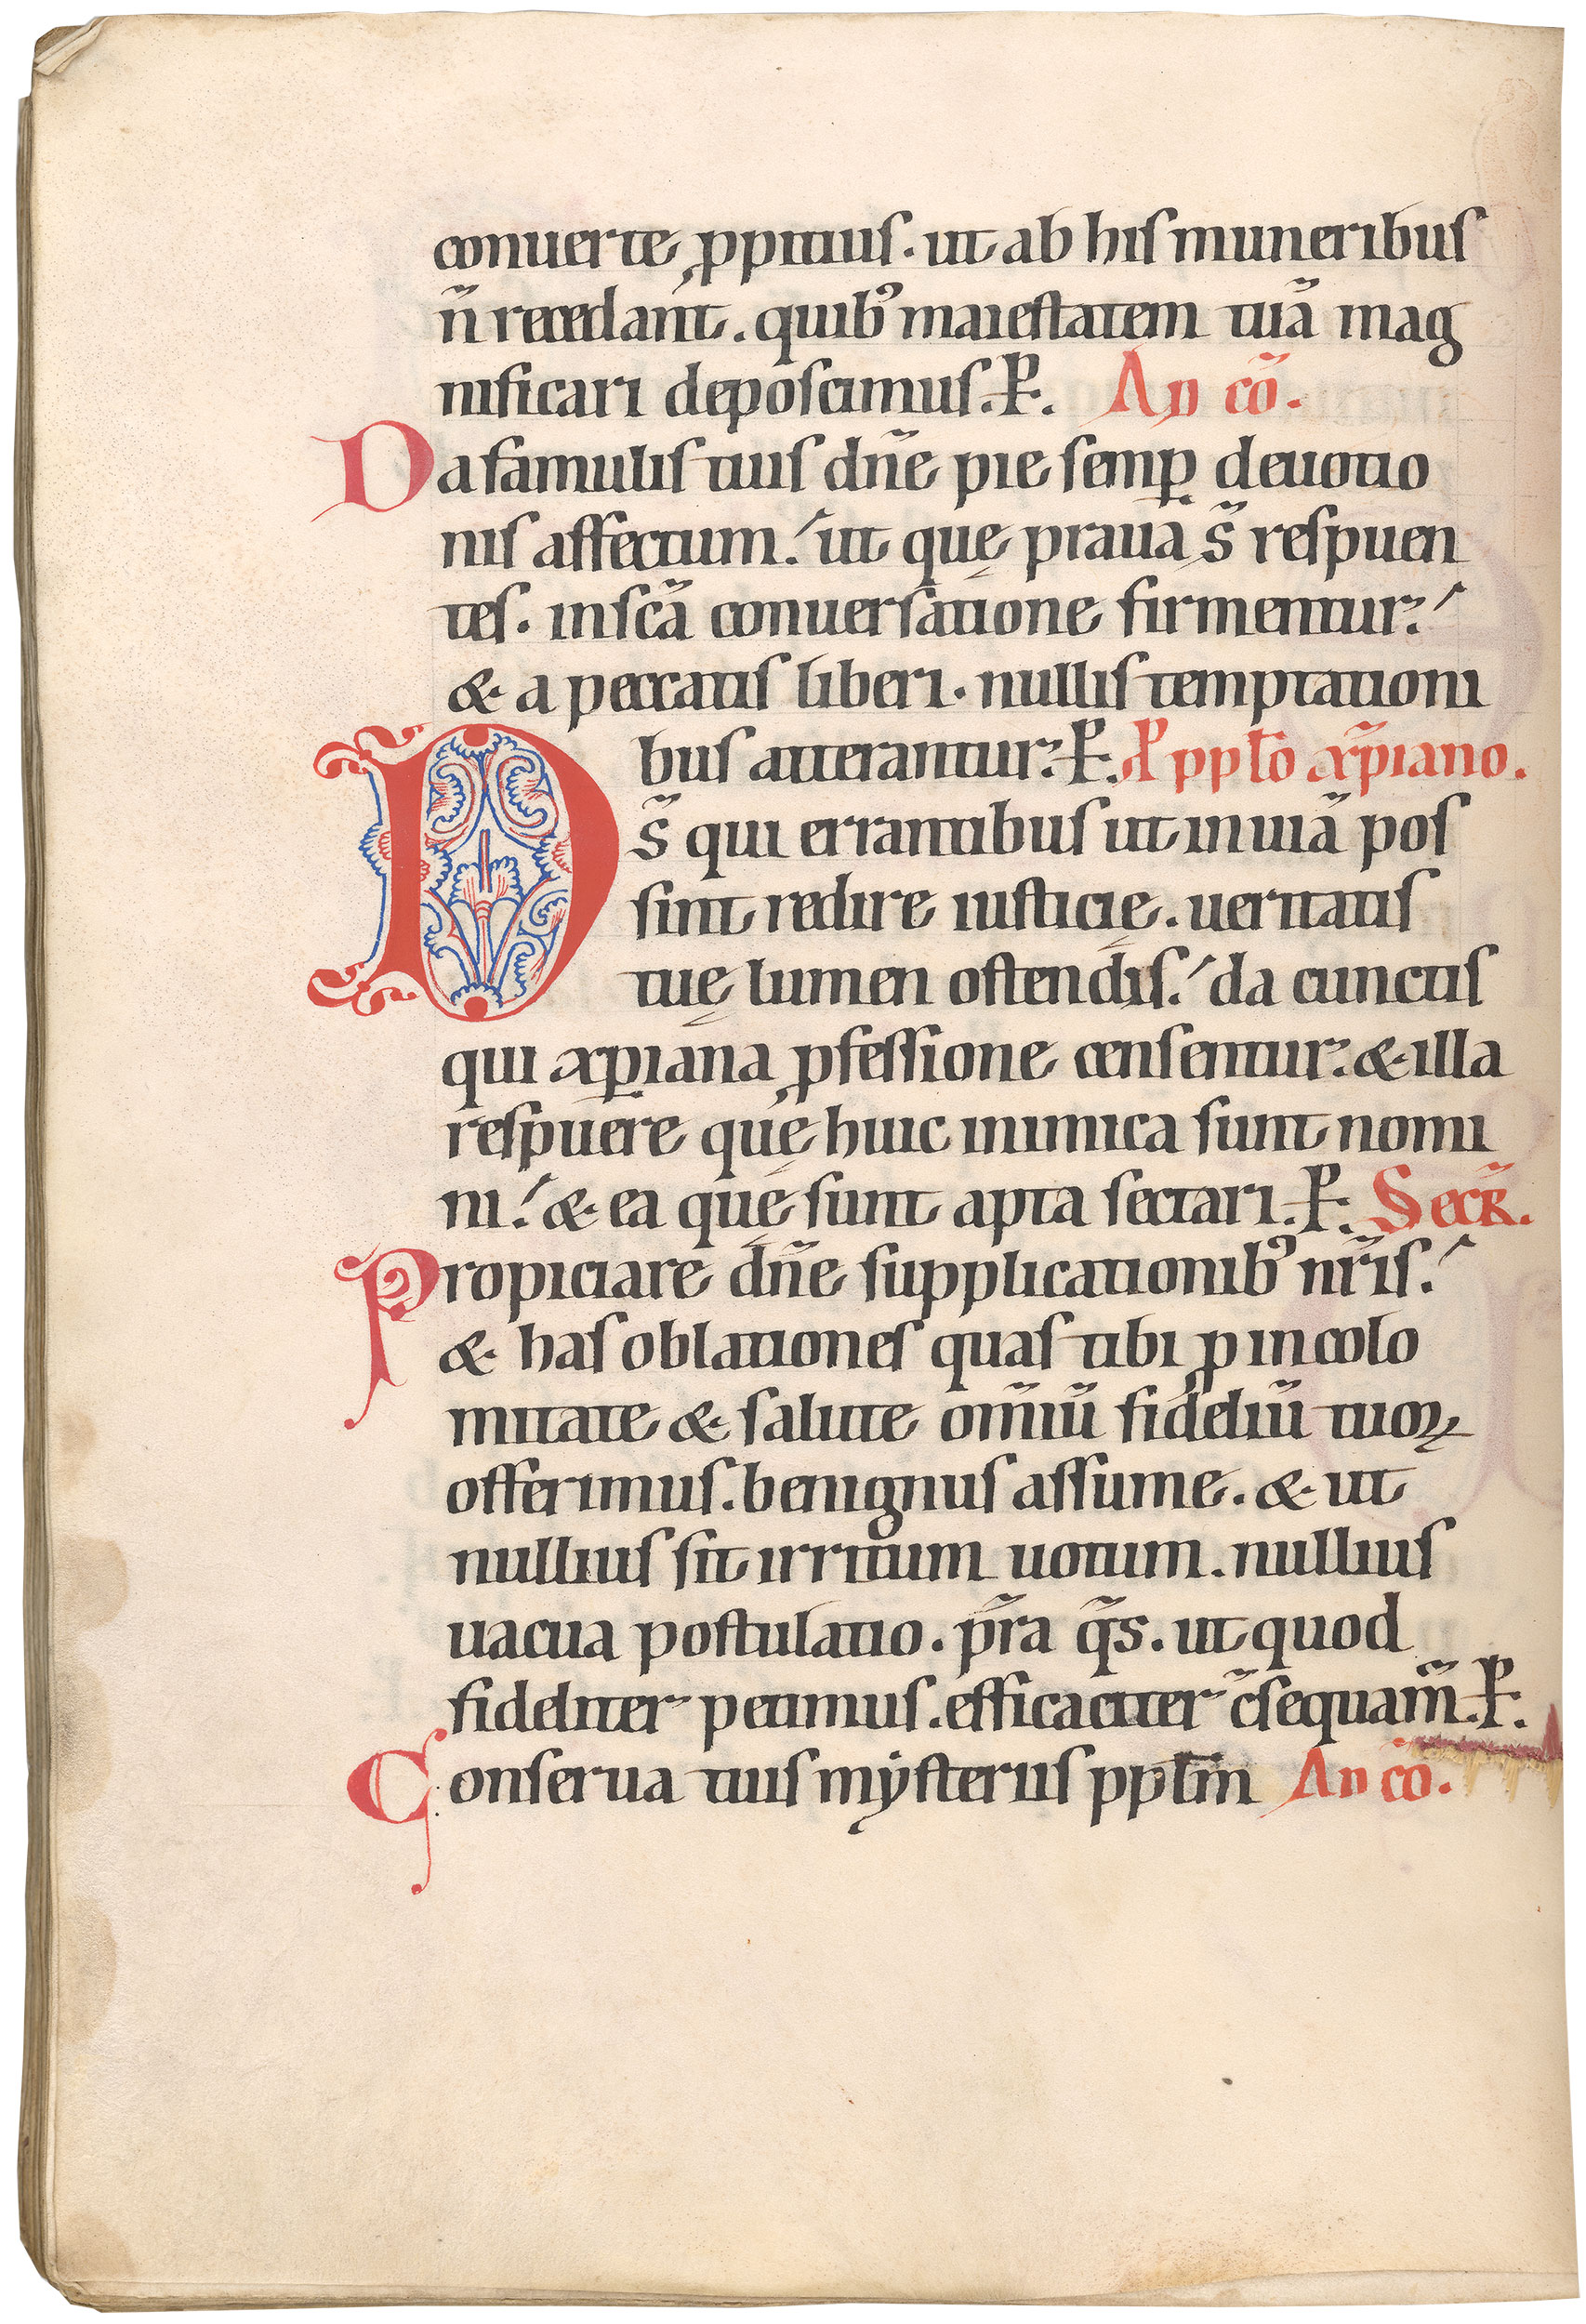 conuerte ꝓpitius. ut ab his muneribus
n̄ recedant. quib᷒ maiestatem tuā mag
nificari deposcimus. P. An cō.
Da famulis tuis dn̄e pie semꝑ deuotio
nis affectum. ut quę praua s̄t respuen
tes. in scā conuersatione firmentur.
& a peccatis liberi. nullis temptationi
bus atterantur. P. P ppl̄o xp̄iano.
Ds̄ qui errantibus ut in uiā pos
sint redire iusticię. ueritatis
tuę lumen ostendis. da cunctis
qui xp̄iana ꝓfessione censentur. & illa
respuere quę huic inimica sunt nomi
ni. & ea quę sunt apta sectari. P. SecR̄.
Propiciare dn̄e supplicationib᷒ nr̄is.
& has oblationes quas tibi ꝓ incolo
mitate & salute om̄iū fideliū tuoꝝ
offerimus. benignus assume. & ut
nullius sit irritum uotum. nullius
uacua postulatio. pr̄a q̄s. ut quod
fideliter petimus. efficaciter c̄sequam̄. P.
Conserua tuis mẏsteriis ppl̄m An cō.